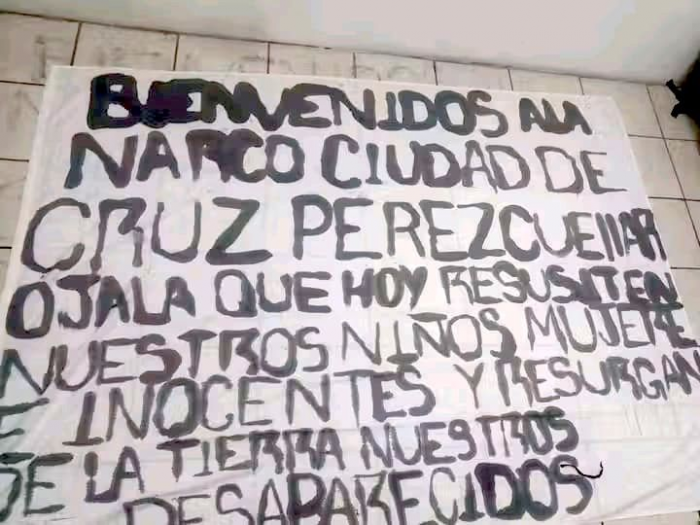 BIENVENIDOS ALA
NARCO CIUDAD DE
CRUZ PEREZCUEllAR
OJALA QUE HOY RESUSITEN
NUESTROS NIÑOS MUJERE
E INOCENTES Y RESURGAN
DE LA TIERRA NUESTROS
DESAPARECIDOS